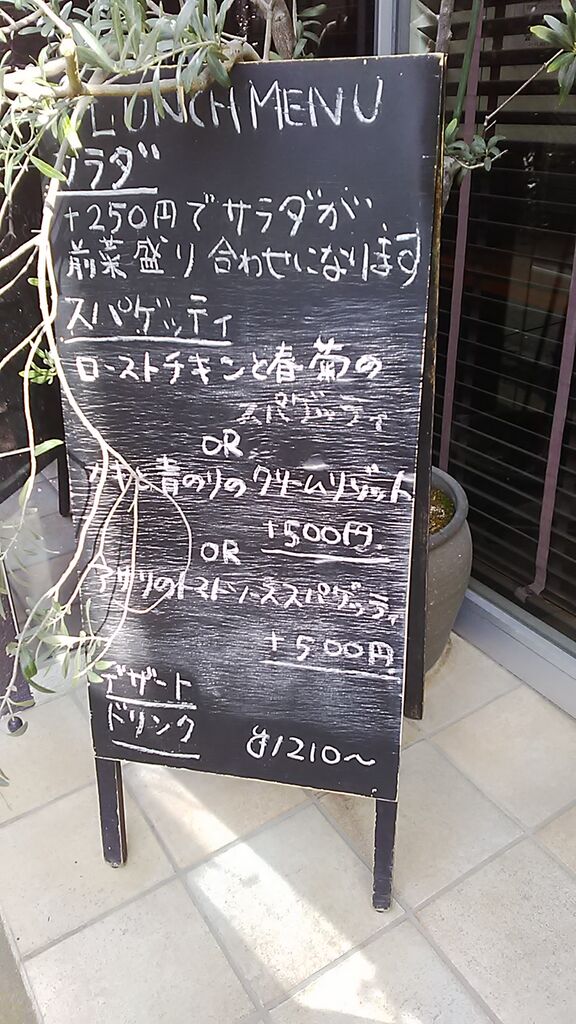 LUNCH MENU
サラダ
+250円でサラダが
前菜盛り合わせになります
スパゲッティ
ローストチキンと春菊の
スパゲッティ
OR
カキと青のりのクリームリゾット
+500円
OR
のトマトソーススパゲッティ
+500円
デザート
ドリンク
¥1210〜